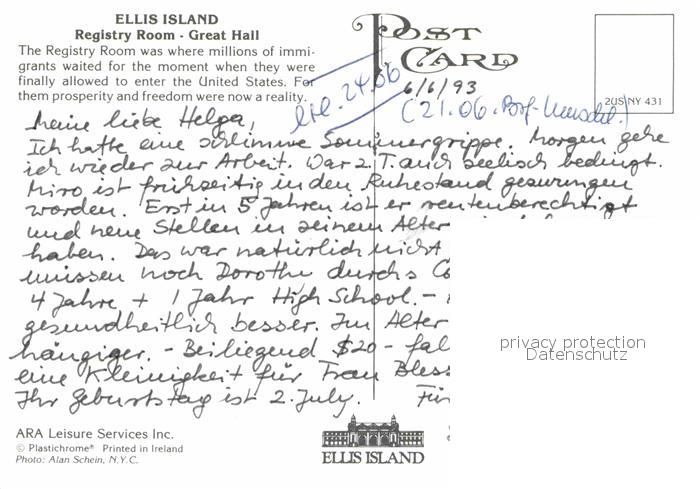 ELLIS ISLAND
Registry Room - Great Hall
The Registry Room was where millions of immi-
grants waited for the moment when they were
finally allowed to enter the United States. For
them prosperity and freedom were now a reality.
POST CARD
2US NY 431
6/6/93
24.06
(21.06.
Meine liebe Helga,
Ich hatte eine schlimme Sommergrippe. Morgen gehe
ich wieder zur Arbeit. War z.T. auch seelisch bedingt.
Miro ist frühzeitig in den Ruhestand gezwungen
worden. Erst in 5 Jahren ist er rentenberechtigt
und neue Stellen in seinem Alter
haben. Das war natürlich nicht
müssen noch Dorothy durchs Co
4 Jahre + 1 Jahr High School. -
gesundheitlich besser. Im Alter
hängiger. - Beiliegend $20 - fal
eine Kleinigkeit für Frau Bless
Ihr Geburtstag ist 2. July. Für
privacy protection
Datenschutz
ARA Leisure Services Inc.
© Plastichrome® Printed in Ireland
Photo: Alan Schein, N.Y.C.
ELLIS ISLAND